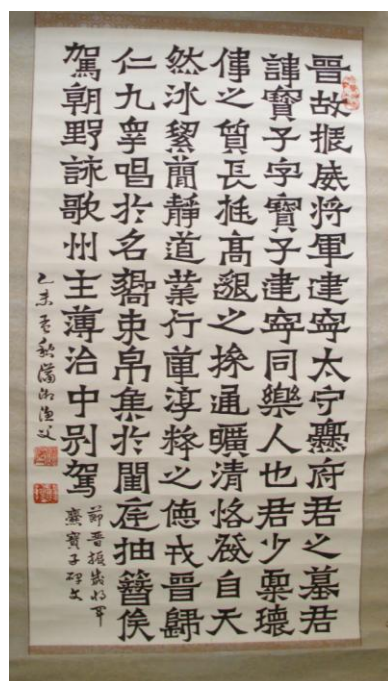 晉故振威將軍建寧太守爨府君之墓君
諱寶子字寶子建寧同樂人也君少稟瓌
偉之質長挺高邈之操通曠清恪發自天
然冰絜簡靜道業行葦淳粹之德戎晉歸
仁九皐唱於名響束帛集於閨庭抽簪俟
駕朝野詠歌州主薄治中别駕
節晉振威將軍
爨寶子碑文
乙未孟秋瀟湘漁父